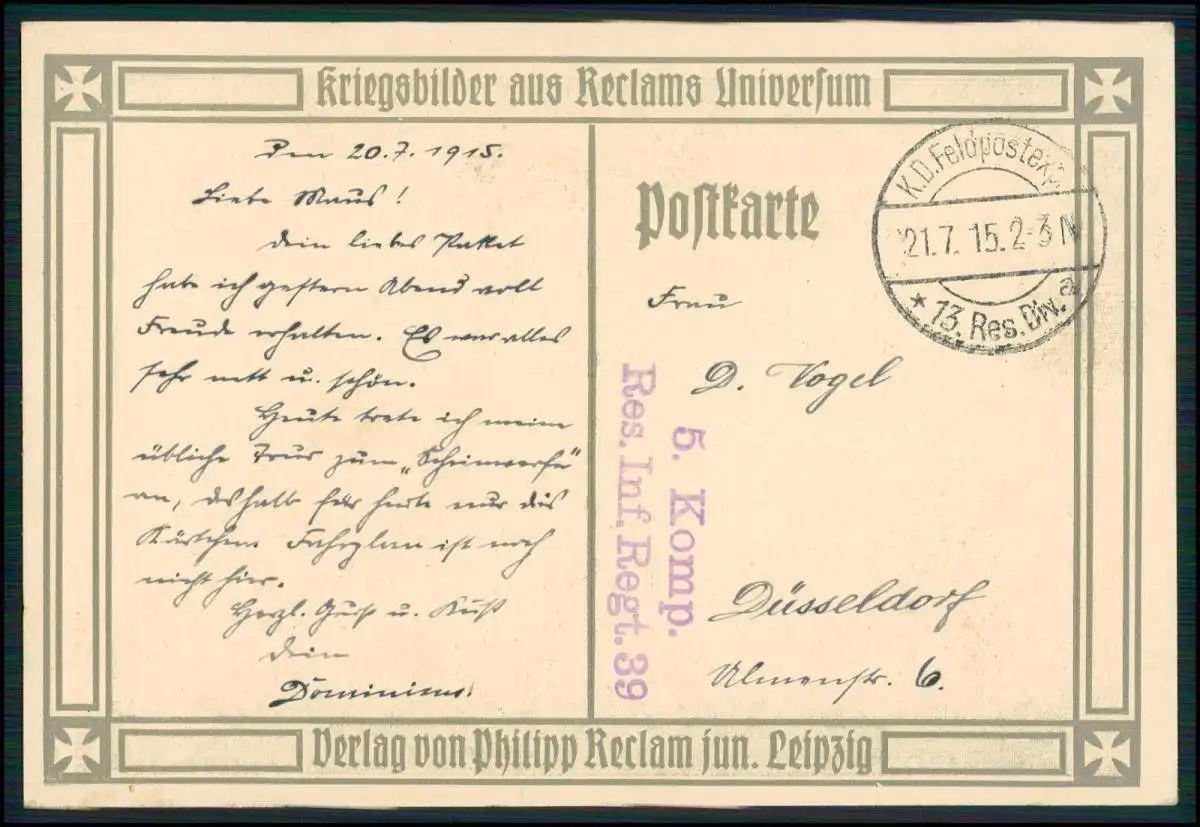 Kriegsbilder aus Reclams Universum
Den 20.7.1915.
Liebe Maus!
Dein liebes Paket
habe ich gestern Abend voll
Freude erhalten. Es war alles
sehr nett u. schön.
Heute trete ich meine
übliche Tour zum „Scheinwerfer"
an, deshalb für heute nur dies
Kärtchen. Fahrplan ist noch
nicht hier.
Herzl. Gruß u. Kuß
Dein
Dominicus.
Postkarte
K.D. Feldpostexp.
21.7.15. 2-3 N
* 13. Res. Div. a
Frau
D. Vogel
5. Komp.
Res. Inf. Regt. 39
Düsseldorf
Ulmenstr. 6.
Verlag von Philipp Reclam jun. Leipzig